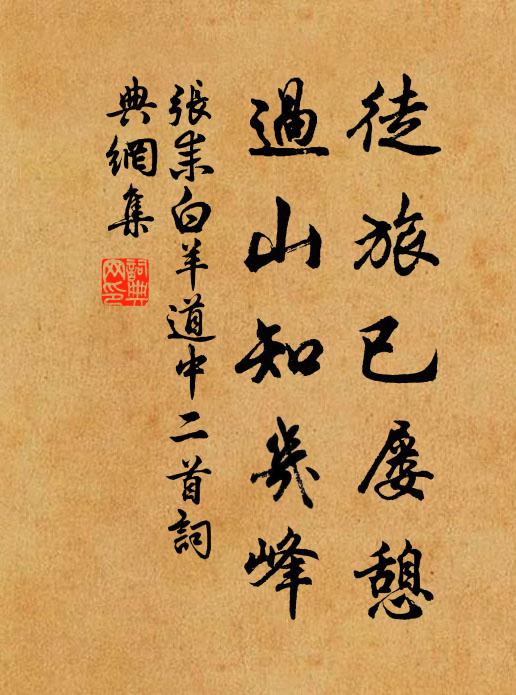 徒旅已屡憩
過山知幾峰
張耒白羊道中二首詞
典網集
詞典网印